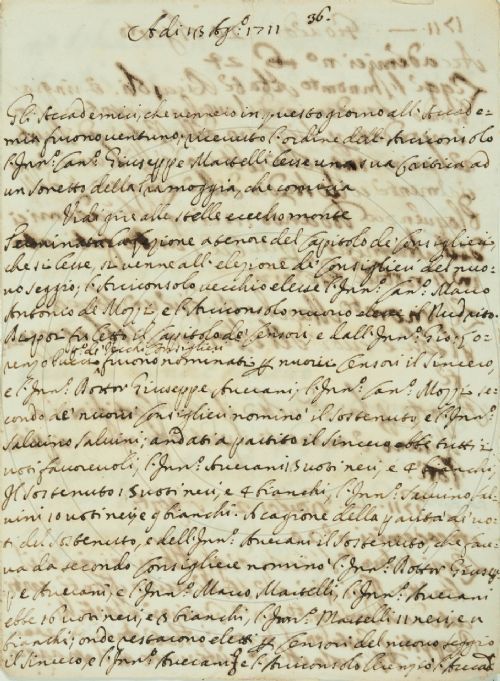 36.
Adi 13 Ag.º 1711
Gli Accademici, che vennero in questo giorno all'Accade-
mia furono ventuno; ricevuto l'ordine dell'Arciconsolo
l'Inn.º Can.º Giuseppe Martelli lesse una sua Critica ad
un Sonetto della Tramoggia, che comincia
Vidi gire alle stelle eccelso monte
Terminata la funzione a tenore del Capitolo de Consiglieri,
che si lesse, si venne all'elezione de Consiglieri del nuo-
vo seggio; l'Arciconsolo vecchio elesse l'Inn.º Can.º Marco
Antonio de Mozzi, e l'Arciconsolo nuovo elesse il Nudrito.
Di poi fu letto il Capitolo de' Censori, e dall'Inn.º Gio: Lo-
renzo furono nominati p nuovi Censori il Sincero,
e l'Inn.º Dottor Giuseppe Averani; l'Inn.º Can.º Mozzi, se-
condo de' nuovi Consiglieri nominò il Sostenuto, e l'Inn.º
Salvino Salvini; andati a partito il Sincero ebbe tutti i
voti favorevoli, l'Inn.º Averani 15 voti neri, e 4 bianchi
Il Sostenuto 15 voti neri, e 4 bianchi, l'Inn.º Salvino Sal-
vini 10 voti neri, e 9 bianchi. A cagione della parità di vo-
ti del Sostenuto, e dell'Inn.º Averani il Sostenuto, che face-
va da secondo Consigliere nominò l'Inn.º Dottor Giusep-
pe Averani, e l'Inn.º Marco Martelli, l'Inn.º Averani
ebbe 16 voti neri, e 3 bianchi, l'Inn.º Martelli 11 neri, e
bianchi; onde restarono eletti p Censori del nuovo seggio
il Sincero, e l'Inn.º Averani, e l'Arciconsolo